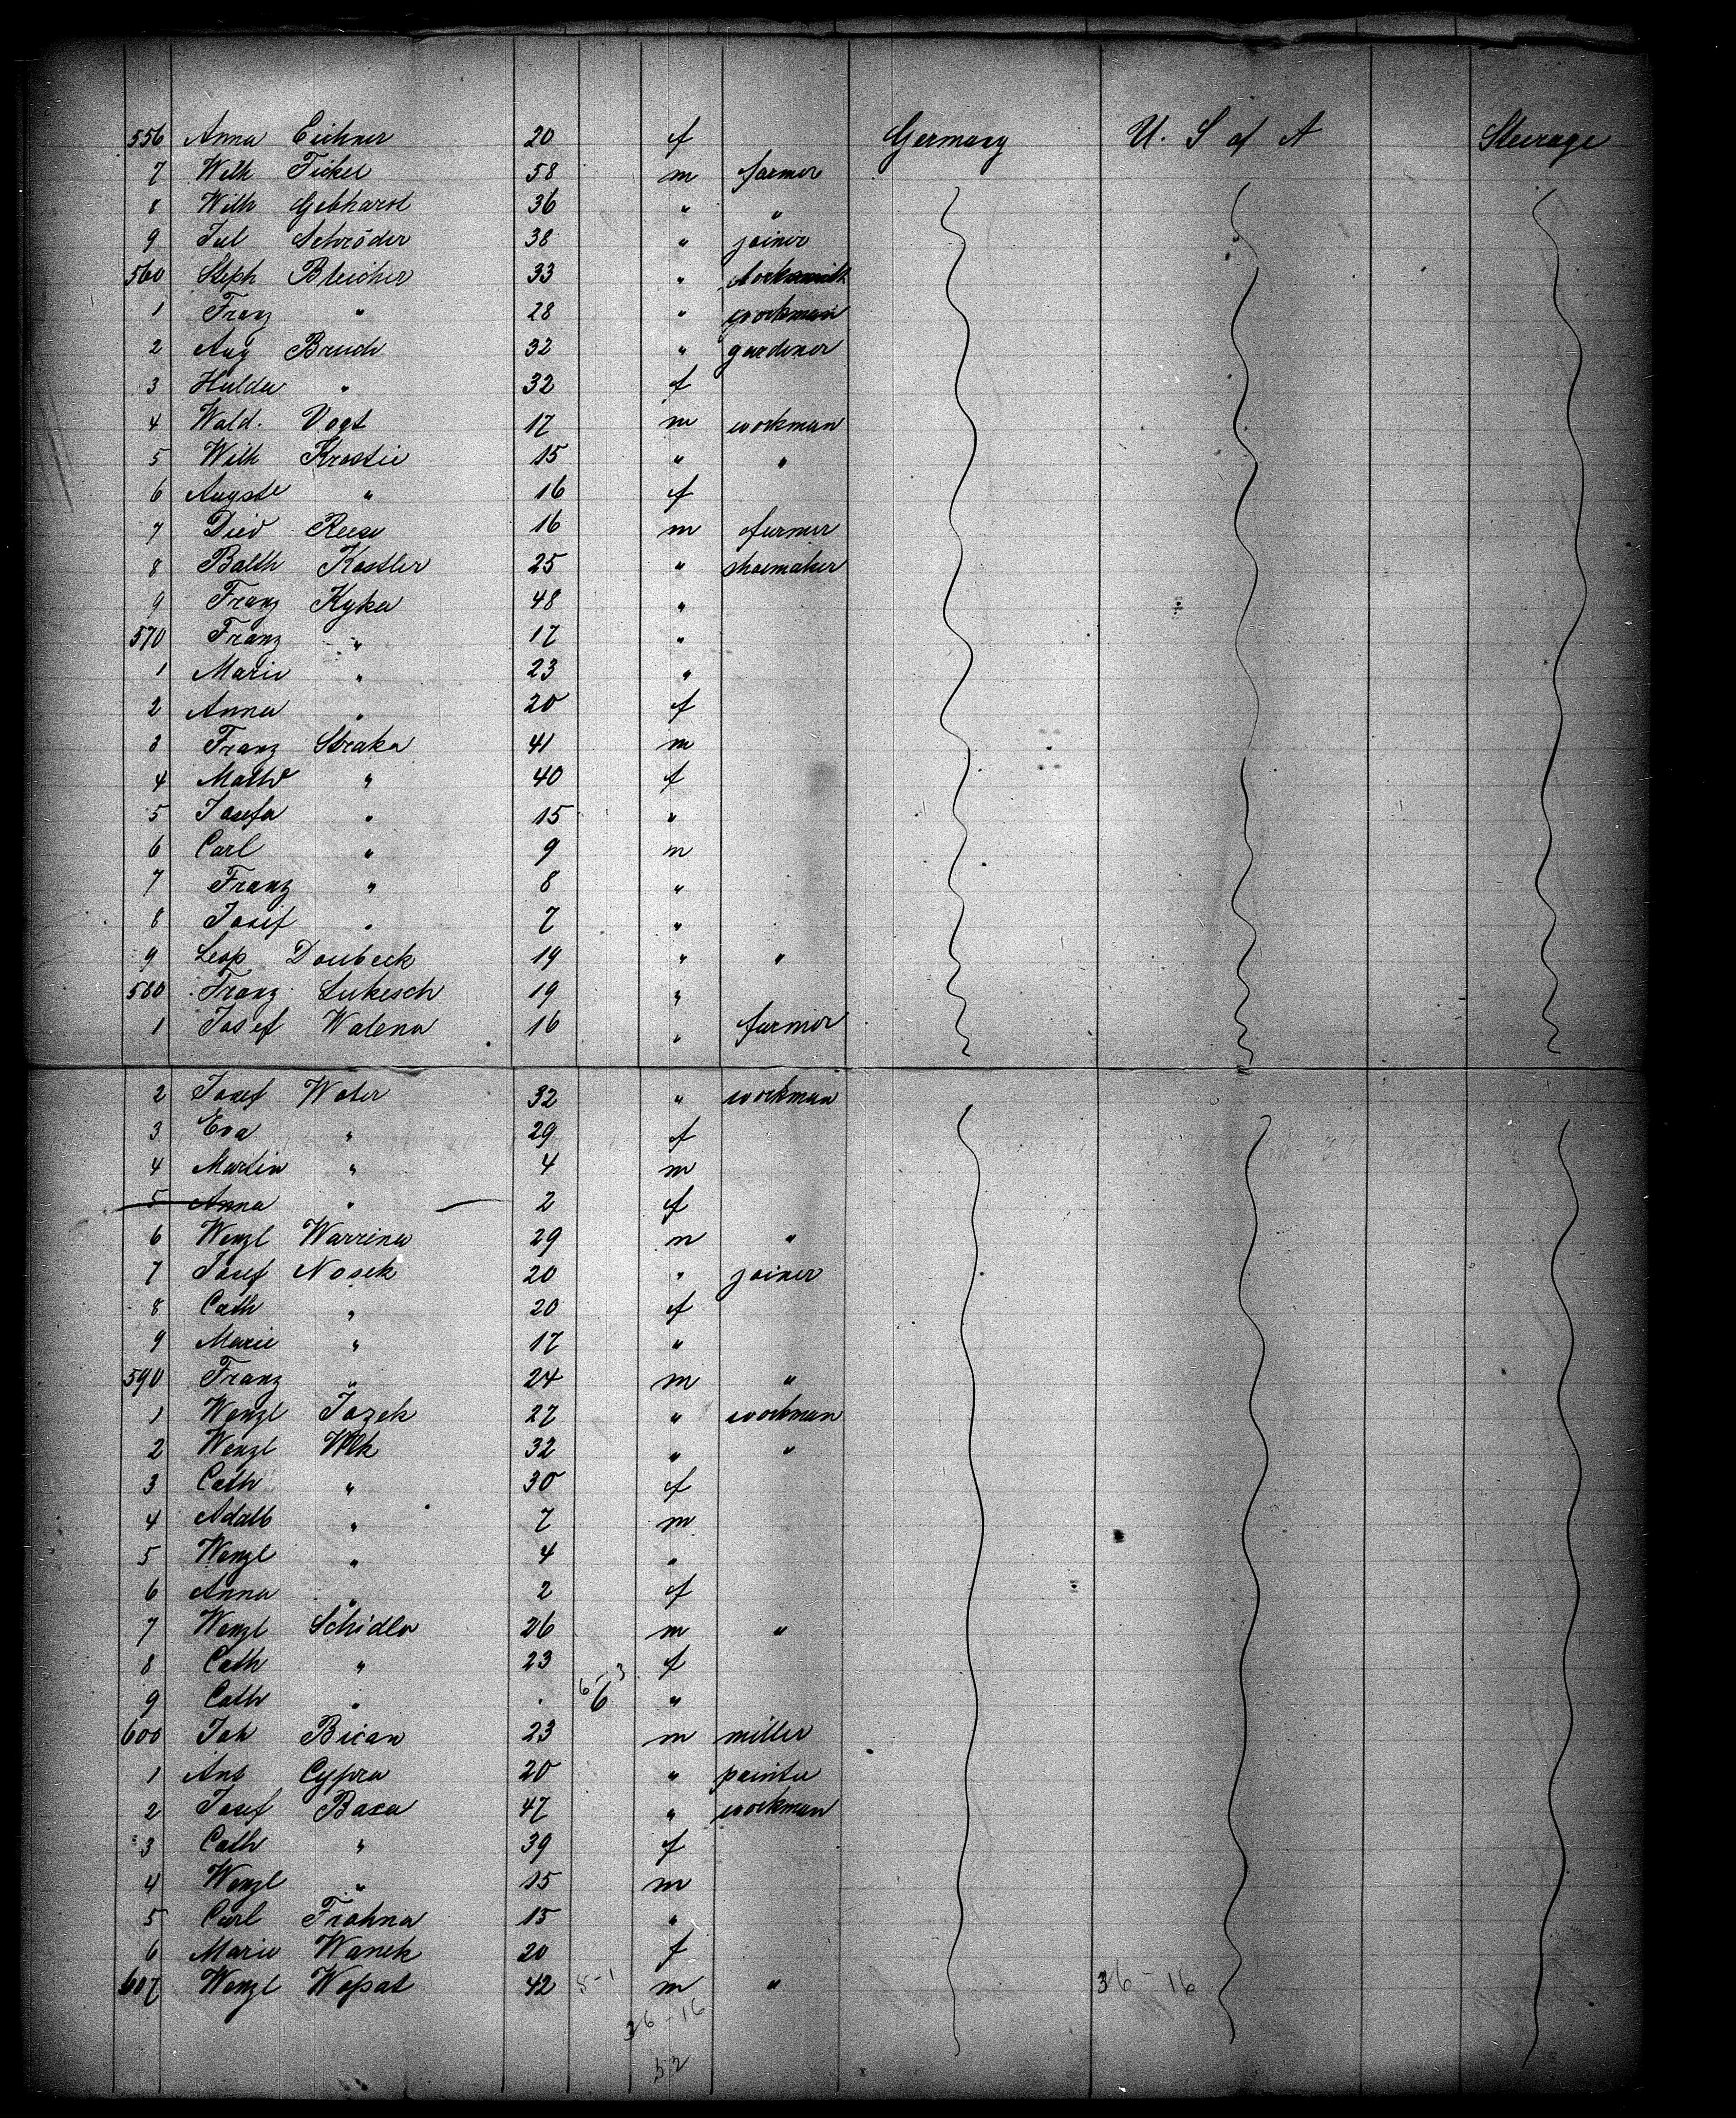 556 Anna Eichner 20 f Germany U. S of A Steerage
7 Wilh Fickel 58 m farmer
8 Wilh Gebhardt 36 " "
9 Jul Schröder 38 " joiner
560 Steph Bleicher 33 " locksmith
1 Franz " 28 " workman
2 Aug Bruch 32 " gardener
3 Hulda " 32 f
4 Wald. Vogt 17 m workman
5 Wilh 15 " "
6 Auguste " 16 f
7 Died Reese 16 m farmer
8 Balth Kastler 25 " shoemaker
9 Franz Kyka 48 "
570 Franz " 17 "
1 Marie " 23 "
2 Anna " 20 f
3 Franz Straka 41 m
4 Mathe " 40 f
5 Josefa " 15 "
6 Carl " 9 m
7 Franz " 8 "
8 Josef " 7 "
9 Leop Doubeck 19 " "
580 Franz Lukesch 19 "
1 Josef Walena 16 " farmer
2 Josef Woter 32 " workman
3 Eva " 29 f
4 Martin " 4 m
5 Anna " 2 f
6 Wenzl Warrina 29 m "
7 Josef Nosek 20 " joiner
8 Cath " 20 f
9 Marie " 17 "
590 Franz " 24 m "
1 Wenzl Jozek 27 " workman
2 Wenzl Wlk 32 " "
3 Cath " 30 f
4 Adalb " 7 m
5 Wenzl " 4 "
6 Anna " 2 f
7 Wenzl Schidla 26 m "
8 Cath " 23 f
9 Cath " 6 "
600 Joh Bican 23 m miller
1 Ant Cypra 20 " painter
2 Josef Baxa 47 " workman
3 Cath " 39 f
4 Wenzl " 15 m
5 Carl Frohna 15 "
6 Marie Wanek 20 f
607 Wenzl Wopat 42 5-1 m " 36-16
36-16
52